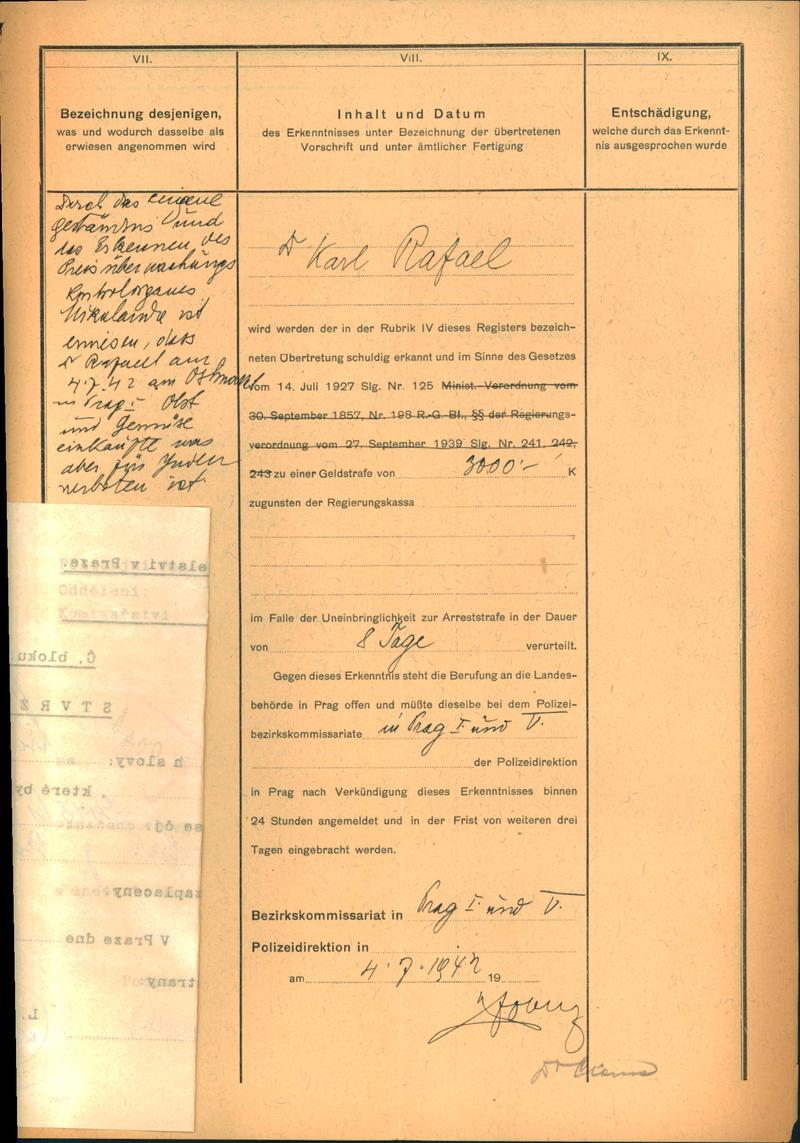 VII.
Bezeichnung desjenigen,
was und wodurch dasselbe als
erwiesen angenommen wird
Durch das eigene
Geständnis und
das Erkennen des
Preisüberwachungs
Kontrolorganes
ist
erwiesen, dass
Dr Rafael am
4.7.42 am Obstmarkt
in Prag I Obst
und Gemüse
einkaufte was
aber für Juden
verboten ist.
VIII.
Inhalt und Datum
des Erkenntnisses unter Bezeichnung der übertretenen
Vorschrift und unter ämtlicher Fertigung
Dr Karl Rafael
wird werden der in der Rubrik IV dieses Registers bezeich-
neten Übertretung schuldig erkannt und im Sinne des Gesetzes
vom 14. Juli 1927 Slg. Nr. 125 Minist.-Verordnung vom
30. September 1857, Nr. 198 R.-G.-Bl., §§ der Regierungs-
verordnung vom 27. September 1939 Slg. Nr. 241, 242,
243 zu einer Geldstrafe von 3000·- K
zugunsten der Regierungskassa
im Falle der Uneinbringlichkeit zur Arreststrafe in der Dauer
von 8 Tage verurteilt.
Gegen dieses Erkenntnis steht die Berufung an die Landes-
behörde in Prag offen und müßte dieselbe bei dem Polizei-
bezirkskommissariate in Prag I und V.
der Polizeidirektion
in Prag nach Verkündigung dieses Erkenntnisses binnen
24 Stunden angemeldet und in der Frist von weiteren drei
Tagen eingebracht werden.
Bezirkskommissariat in Prag I und V.
Polizeidirektion in
am 4.7.1942 19
Dr
IX.
Entschädigung,
welche durch das Erkennt-
nis ausgesprochen wurde
elství v Praze.
Oddělení:
Komisařství
Č. bloku
S T V R Z
h slovy:
, které by
zaplaceny
V Praze dne
strany